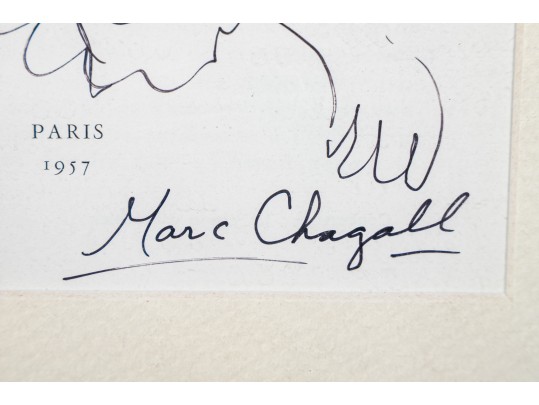 PARIS
1957
Marc Chagall